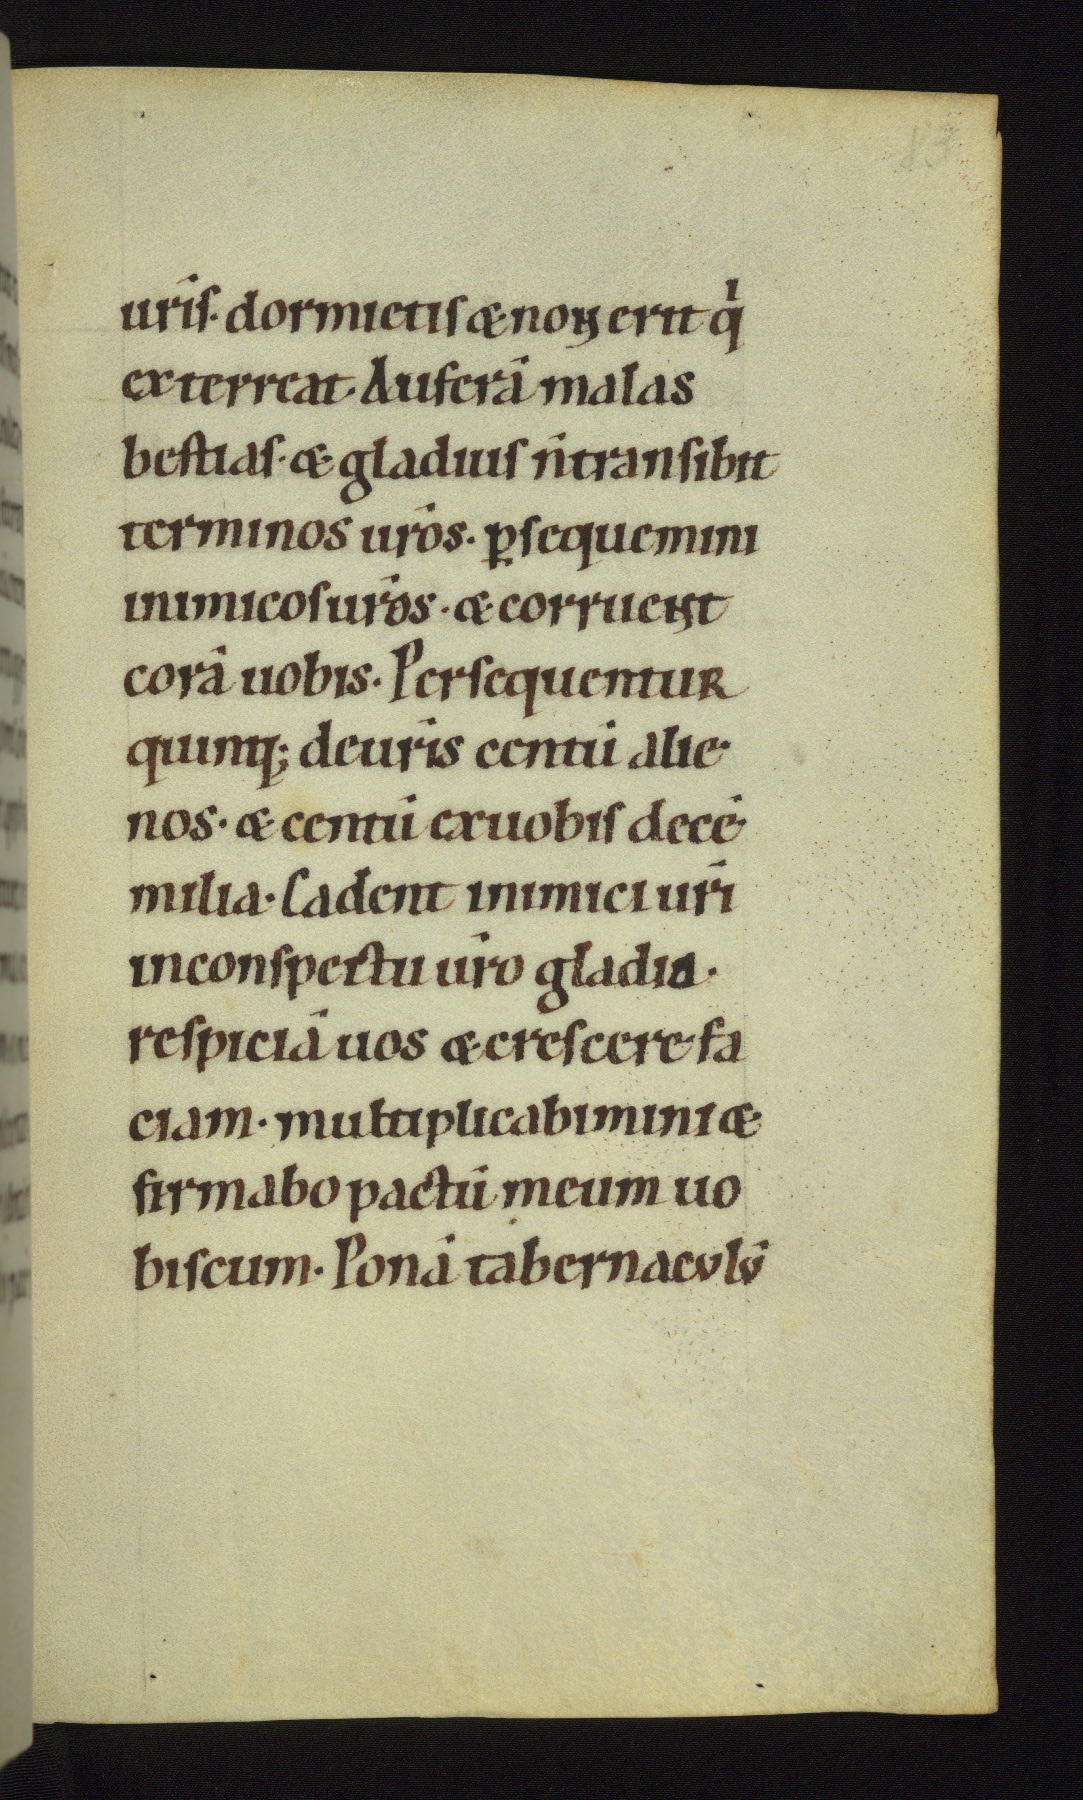 83
uri̅s. dormietis & non erit qⁱ
exterreat. Auferā malas
bestias. & gladius n̄ transibit
terminos ur̄os. ꝑsequemini
inimicos ur̄os. & corruent
corā uobis. Persequentur
quinq; de uri̅s centū alie
nos. & centū ex uobis decē
milia. Cadent inimici ur̄i
in conspectu ur̄o gladio.
respiciā uos & crescere fa
ciam. multiplicabimini &
firmabo pactū meum uo
biscum. Ponā tabernaculū